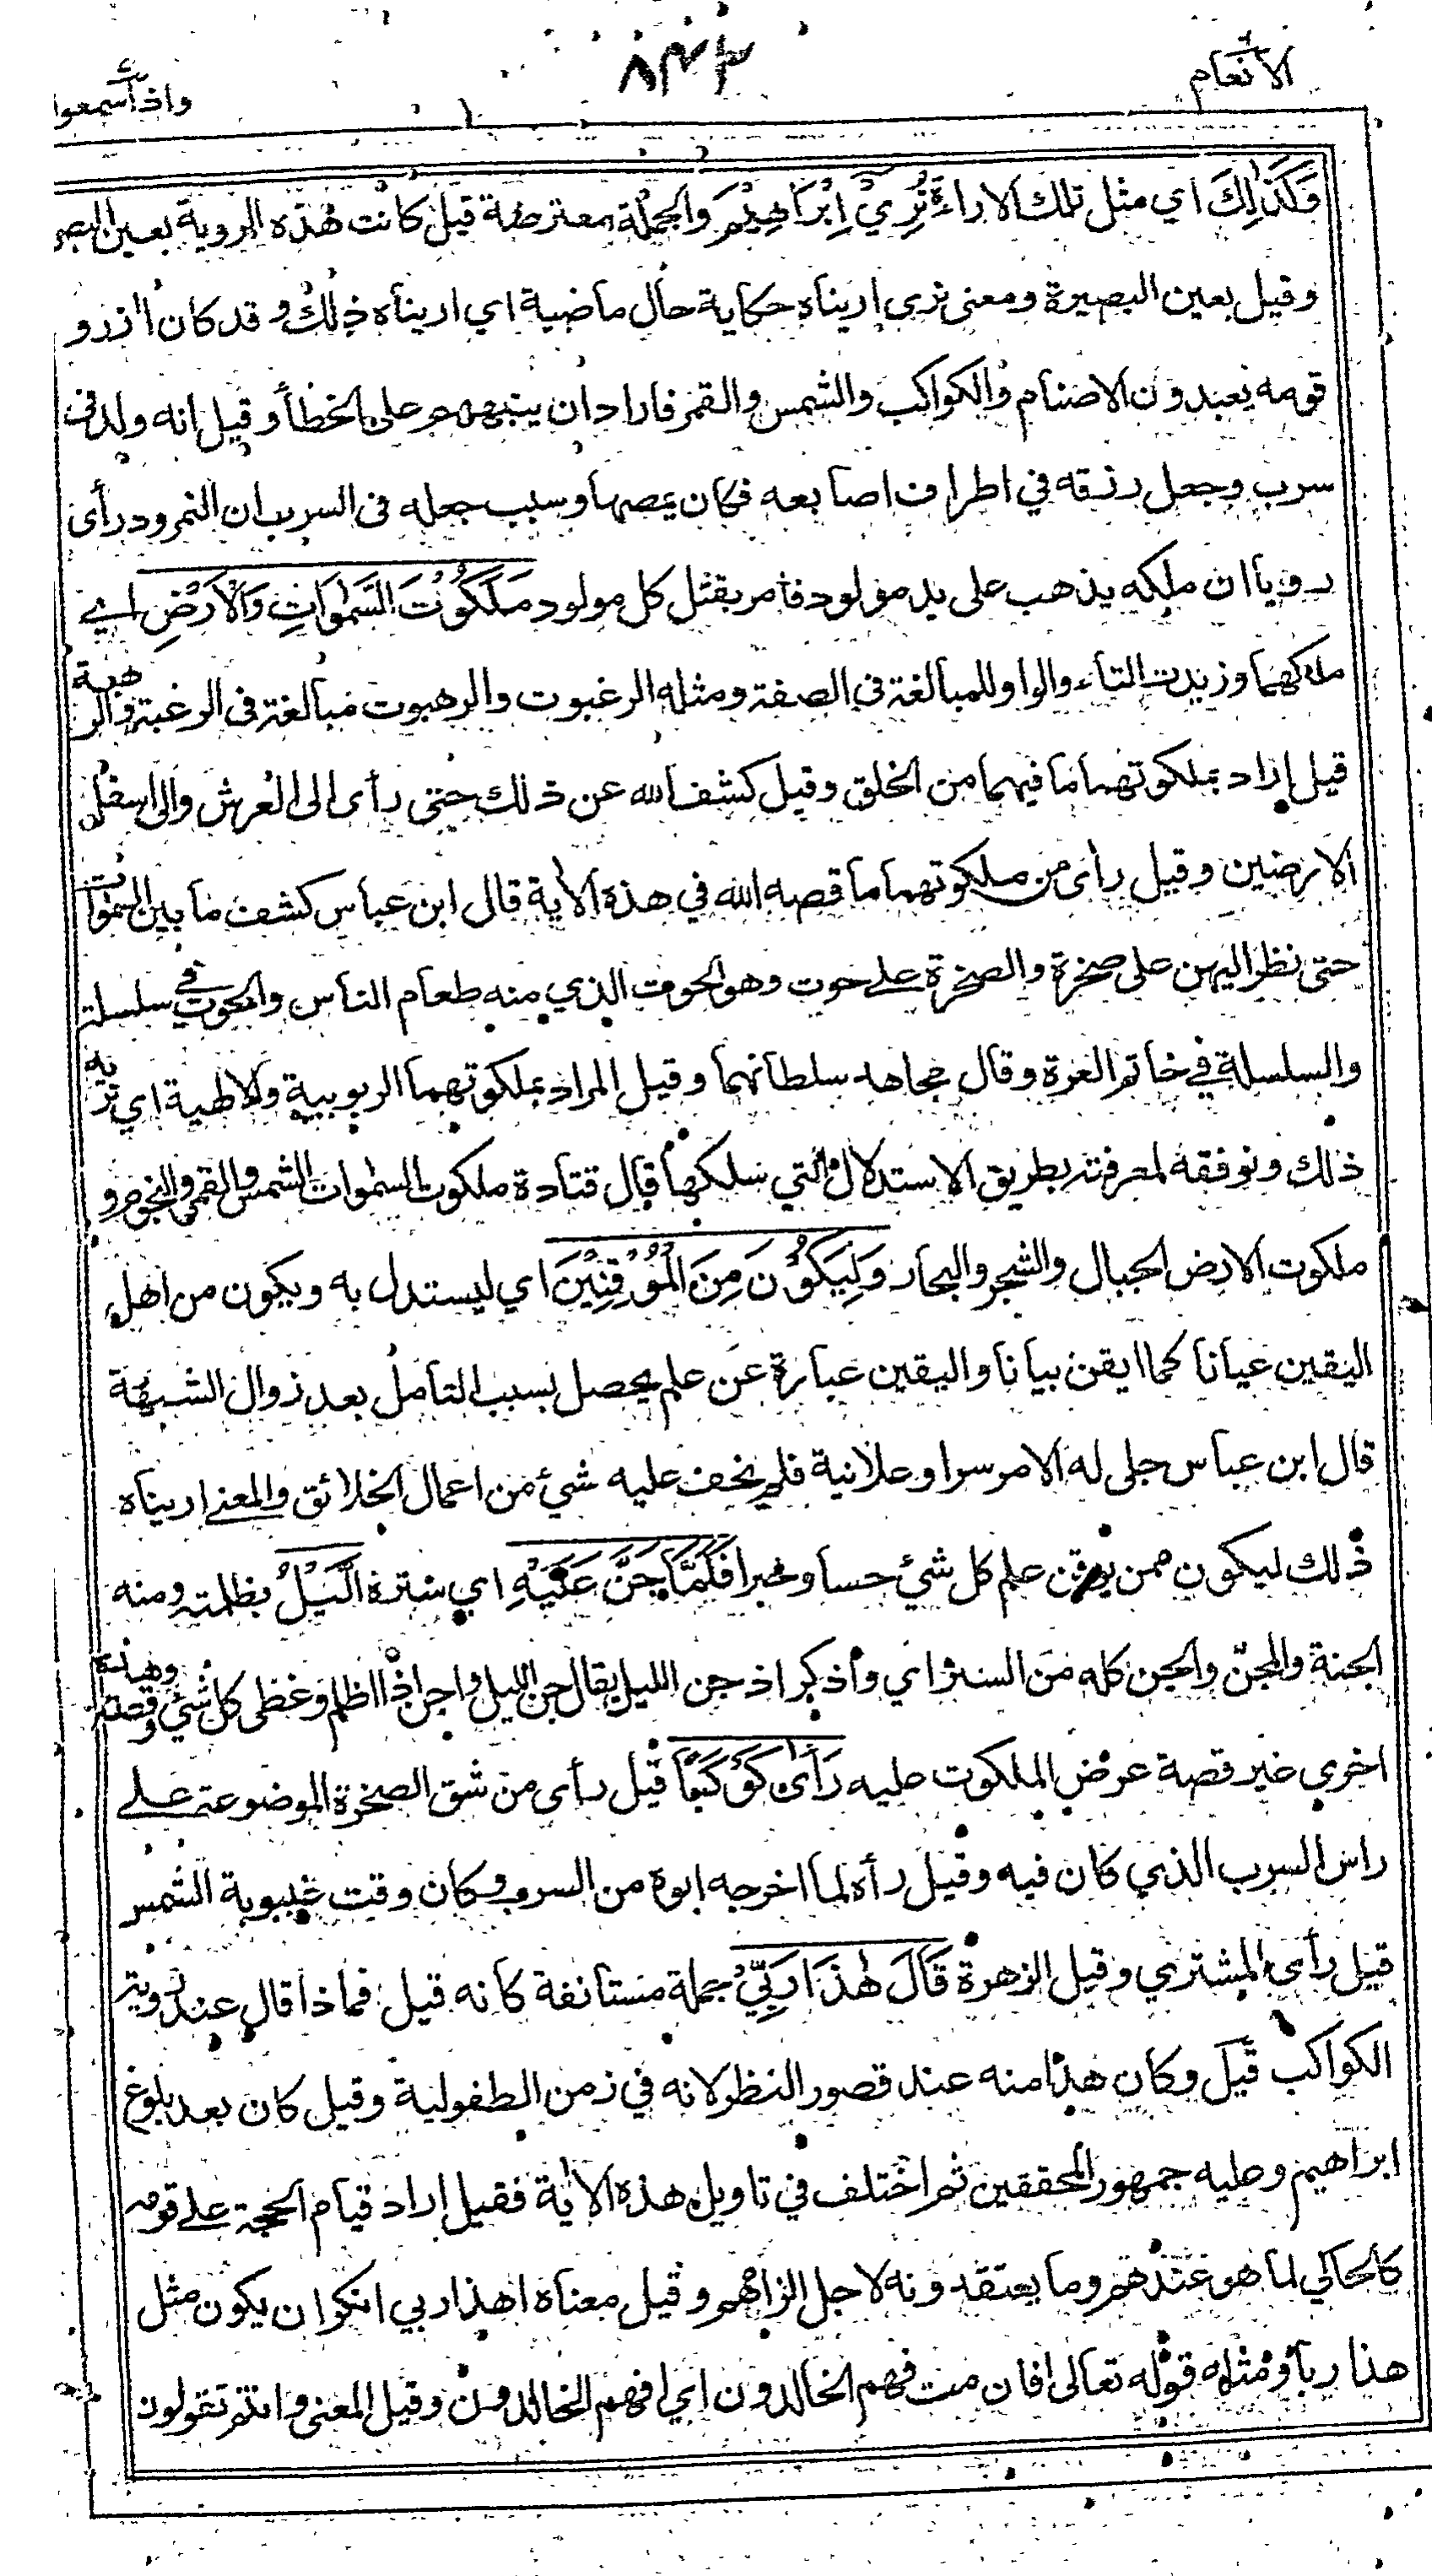 الانعام
٨٤٣
واذا سمعوا
وَكَذٰلِكَ اي مثل تلك الاراءة نُرِيْ اِبْرَاهِيْمَ والجملة معترضة قيل كانت هذه الروية بعين البصر
وقيل بعين البصيرة ومعنى نرى اريناه حكاية حال ماضية اي اريناه ذلك وقد كان ازر و
قومه يعبدون الاصنام والكواكب والشمس والقمر فاراد ان ينبههم على الخطأ وقيل انه ولد في
سرب وجعل رزقه في اطراف اصابعه فكان يمصها وسبب جعله في السرب ان النمرود رأى
رويا ان ملكه يذهب على يد مولود فامر بقتل كل مولود مَلَكُوْتَ السَّمٰوَاتِ وَالْاَرْضِ اي
ملكهما وزيدت التاء والواو للمبالغة في الصفة ومثله الرغبوت والرهبوت مبالغة في الرغبة والرهبة
قيل اراد بملكوتهما ما فيهما من الخلق وقيل كشف الله عن ذلك حتى رأى الى العرش والى اسفل
الارضين وقيل رأى من ملكوتهما ما قصه الله في هذه الاية قال ابن عباس كشف ما بين السموات
حتى نظر اليهن على صخرة والصخرة على حوت وهو الحوت الذي منه طعام الناس والحوت في سلسلة
والسلسلة في خاتم العزة وقال مجاهد سلطانهما وقيل المراد بملكوتهما الربوبية والالهية اي نريه
ذلك ونوفقه لمعرفته بطريق الاستدلال التي سلكها قال قتادة ملكوت السموات الشمس والقمر والنجوم و
ملكوت الارض الجبال والشجر والبحار وَلِيَكُوْنَ مِنَ الْمُوْقِنِيْنَ اي ليستدل به ويكون من اهل
اليقين عيانا كما ايقن بيانا واليقين عبارة عن علم يحصل بسبب التامل بعد زوال الشبهة
قال ابن عباس جلى له الامر سرا وعلانية فلم يخف عليه شئ من اعمال الخلائق والمعنى اريناه
ذلك ليكون ممن يوقن علم كل شئ حسا وخبرا فَلَمَّا جَنَّ عَلَيْهِ اي ستره الَّيْلُ بظلمته ومنه
الجنة والمجنّ والجن كله من الستر اي واذكر اذ جن الليل يقال جن الليل واجن اذا اظلم وغطى كل شئ وهذه قصة
اخرى غير قصة عرض الملكوت عليه رَأٰى كَوْكَبًا قيل رأى من شق الصخرة الموضوعة على
راس السرب الذي كان فيه وقيل رأه لما اخرجه ابوه من السرب وكان وقت غيبوبة الشمس
قيل رأى المشتري وقيل الزهرة قَالَ هٰذَا رَبِّيْ جملة مستانفة كانه قيل فماذا قال عند روية
الكواكب قيل وكان هذا منه عند قصور النظر لانه في زمن الطفولية وقيل كان بعد بلوغ
ابراهيم وعليه جمهور المحققين ثم اختلف في تاويل هذه الاية فقيل اراد قيام الحجة على قومه
كالحاكي لما هو عندهم وما يعتقدونه لاجل الزامهم وقيل معناه اهذا ربي انكر ان يكون مثل
هذا ربا ومثله قوله تعالى افان مت فهم الخالدون اي افهم الخالدون وقيل المعنى وانتم تقولون